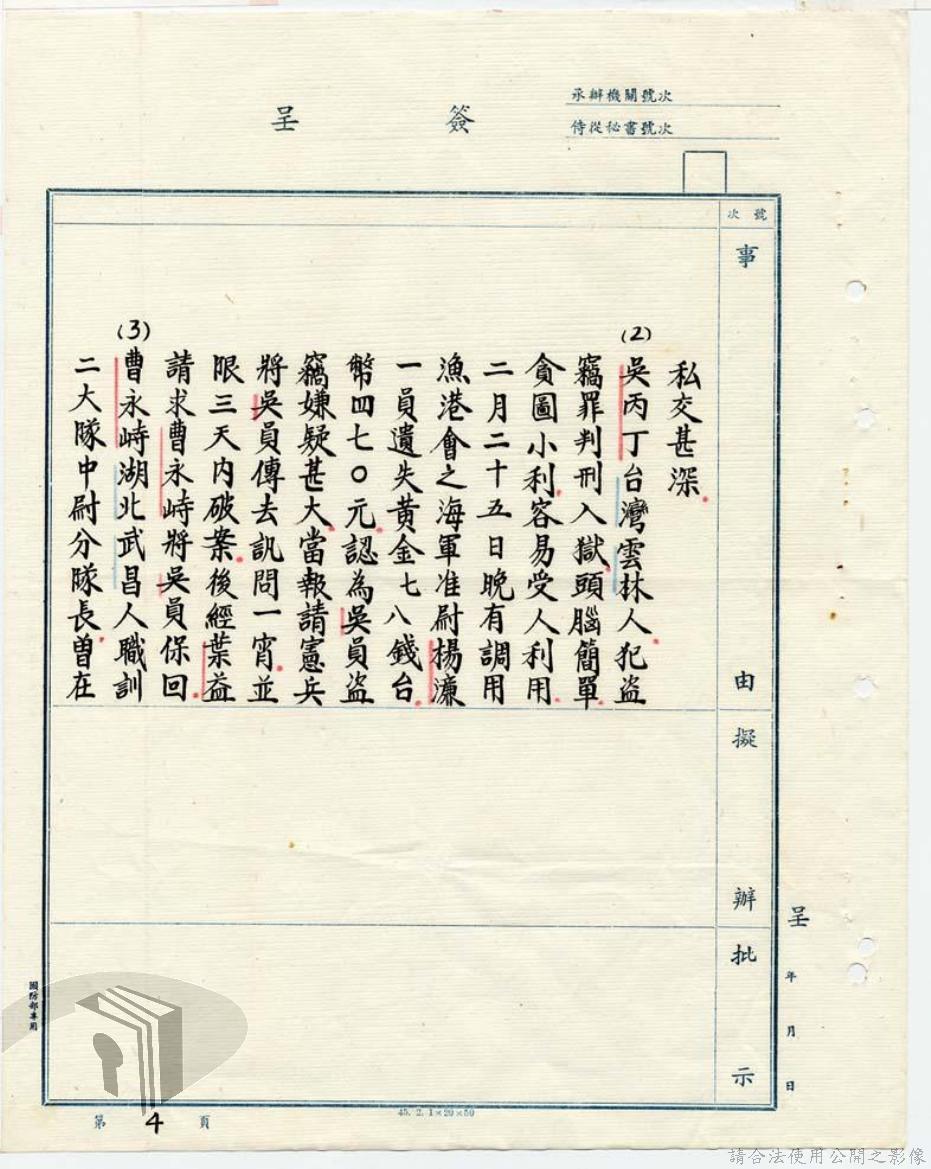 簽呈
承辦機關號次
侍從秘書號次
號次
事由
擬辦
批示
呈
年月日
私交甚深.
(2)吳丙丁台灣雲林人.犯盜
竊罪判刑入獄.頭腦簡單.
貪圖小利.容易受人利用.
二月二十五日晚有調用
漁港會之海軍准尉楊濂
一員遺失黃金七八錢台.
幣四七〇元.認為吳員盜
竊嫌疑甚大.當報請憲兵
將吳員傳去訊問一宵.並
限三天内破案.後經葉益
請求曹永峙將吳員保回.
(3)曹永峙湖北武昌人職訓
二大隊中尉分隊長.曽在
國防部專用
第4頁
45. 2. 1×20×50
請合法使用公開之影像